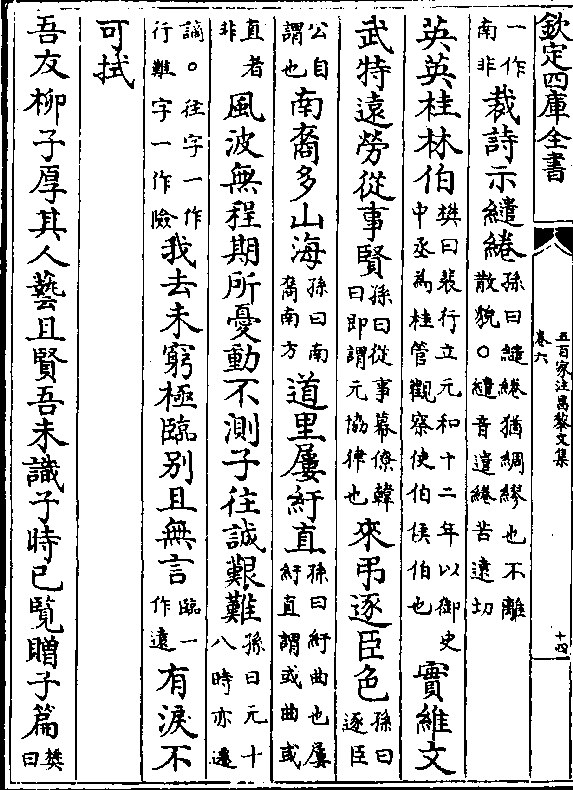 欽定四庫全書
五百家注昌黎文集
卷六
十四
一作南非裁詩示繾綣孫曰繾綣猶綢繆也不離散貌○繾音遣綣苦遠切
英英桂林伯樊曰裴行立元和十二年以御史中丞為桂管觀察使伯侯伯也實維文
武特遠勞從事賢孫曰從事幕僚韓曰即謂元協律也來弔逐臣色孫曰逐臣
公自謂也南裔多山海孫曰南裔南方道里屢紆直孫曰紆曲也屢紆直謂或曲或
直者非風波無程期所憂動不測子往誠艱難孫曰元十八時亦遷
謫○往字一作行難字一作險我去未窮極臨别且無言臨一作遠有淚不
可拭
吾友柳子厚其人藝且賢吾未識子時已覽贈子篇樊曰